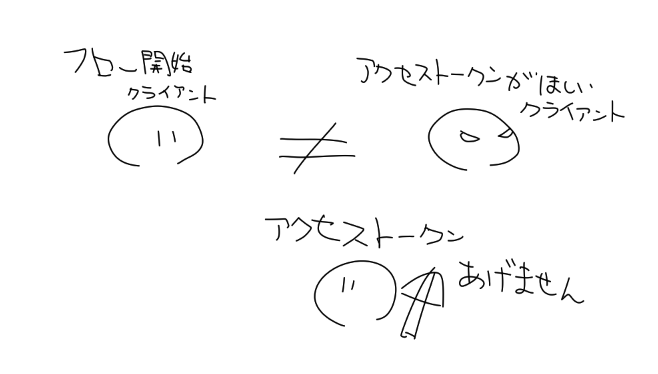 フロー開始
クライアント
≠
アクセストークンがほしい
クライアント
アクセストークン
あげません